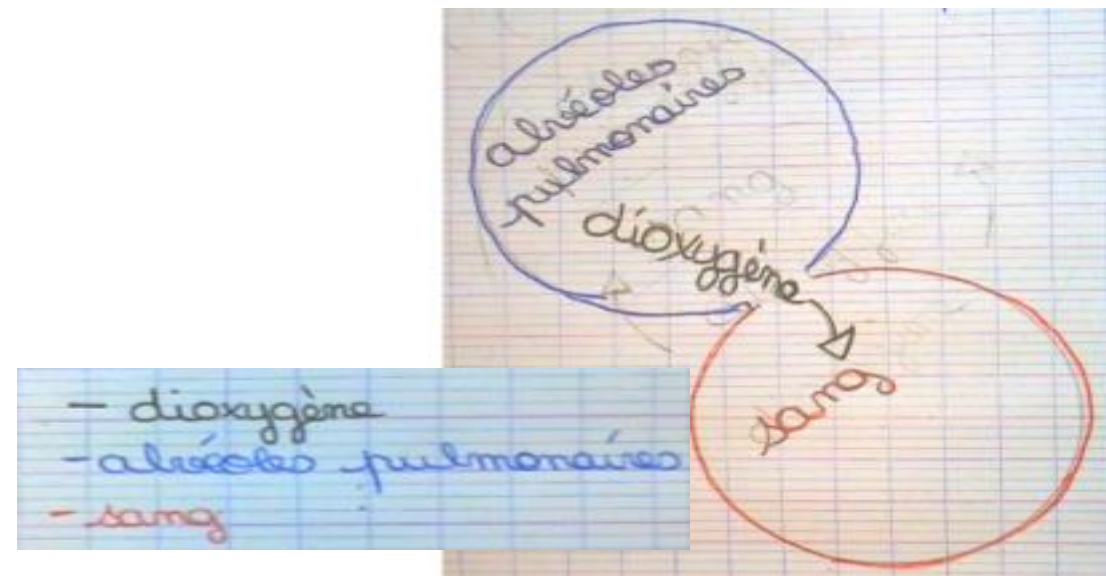 alvéoles
pulmonaires
dioxygène
sang
- dioxygène
- alvéoles pulmonaires
- sang